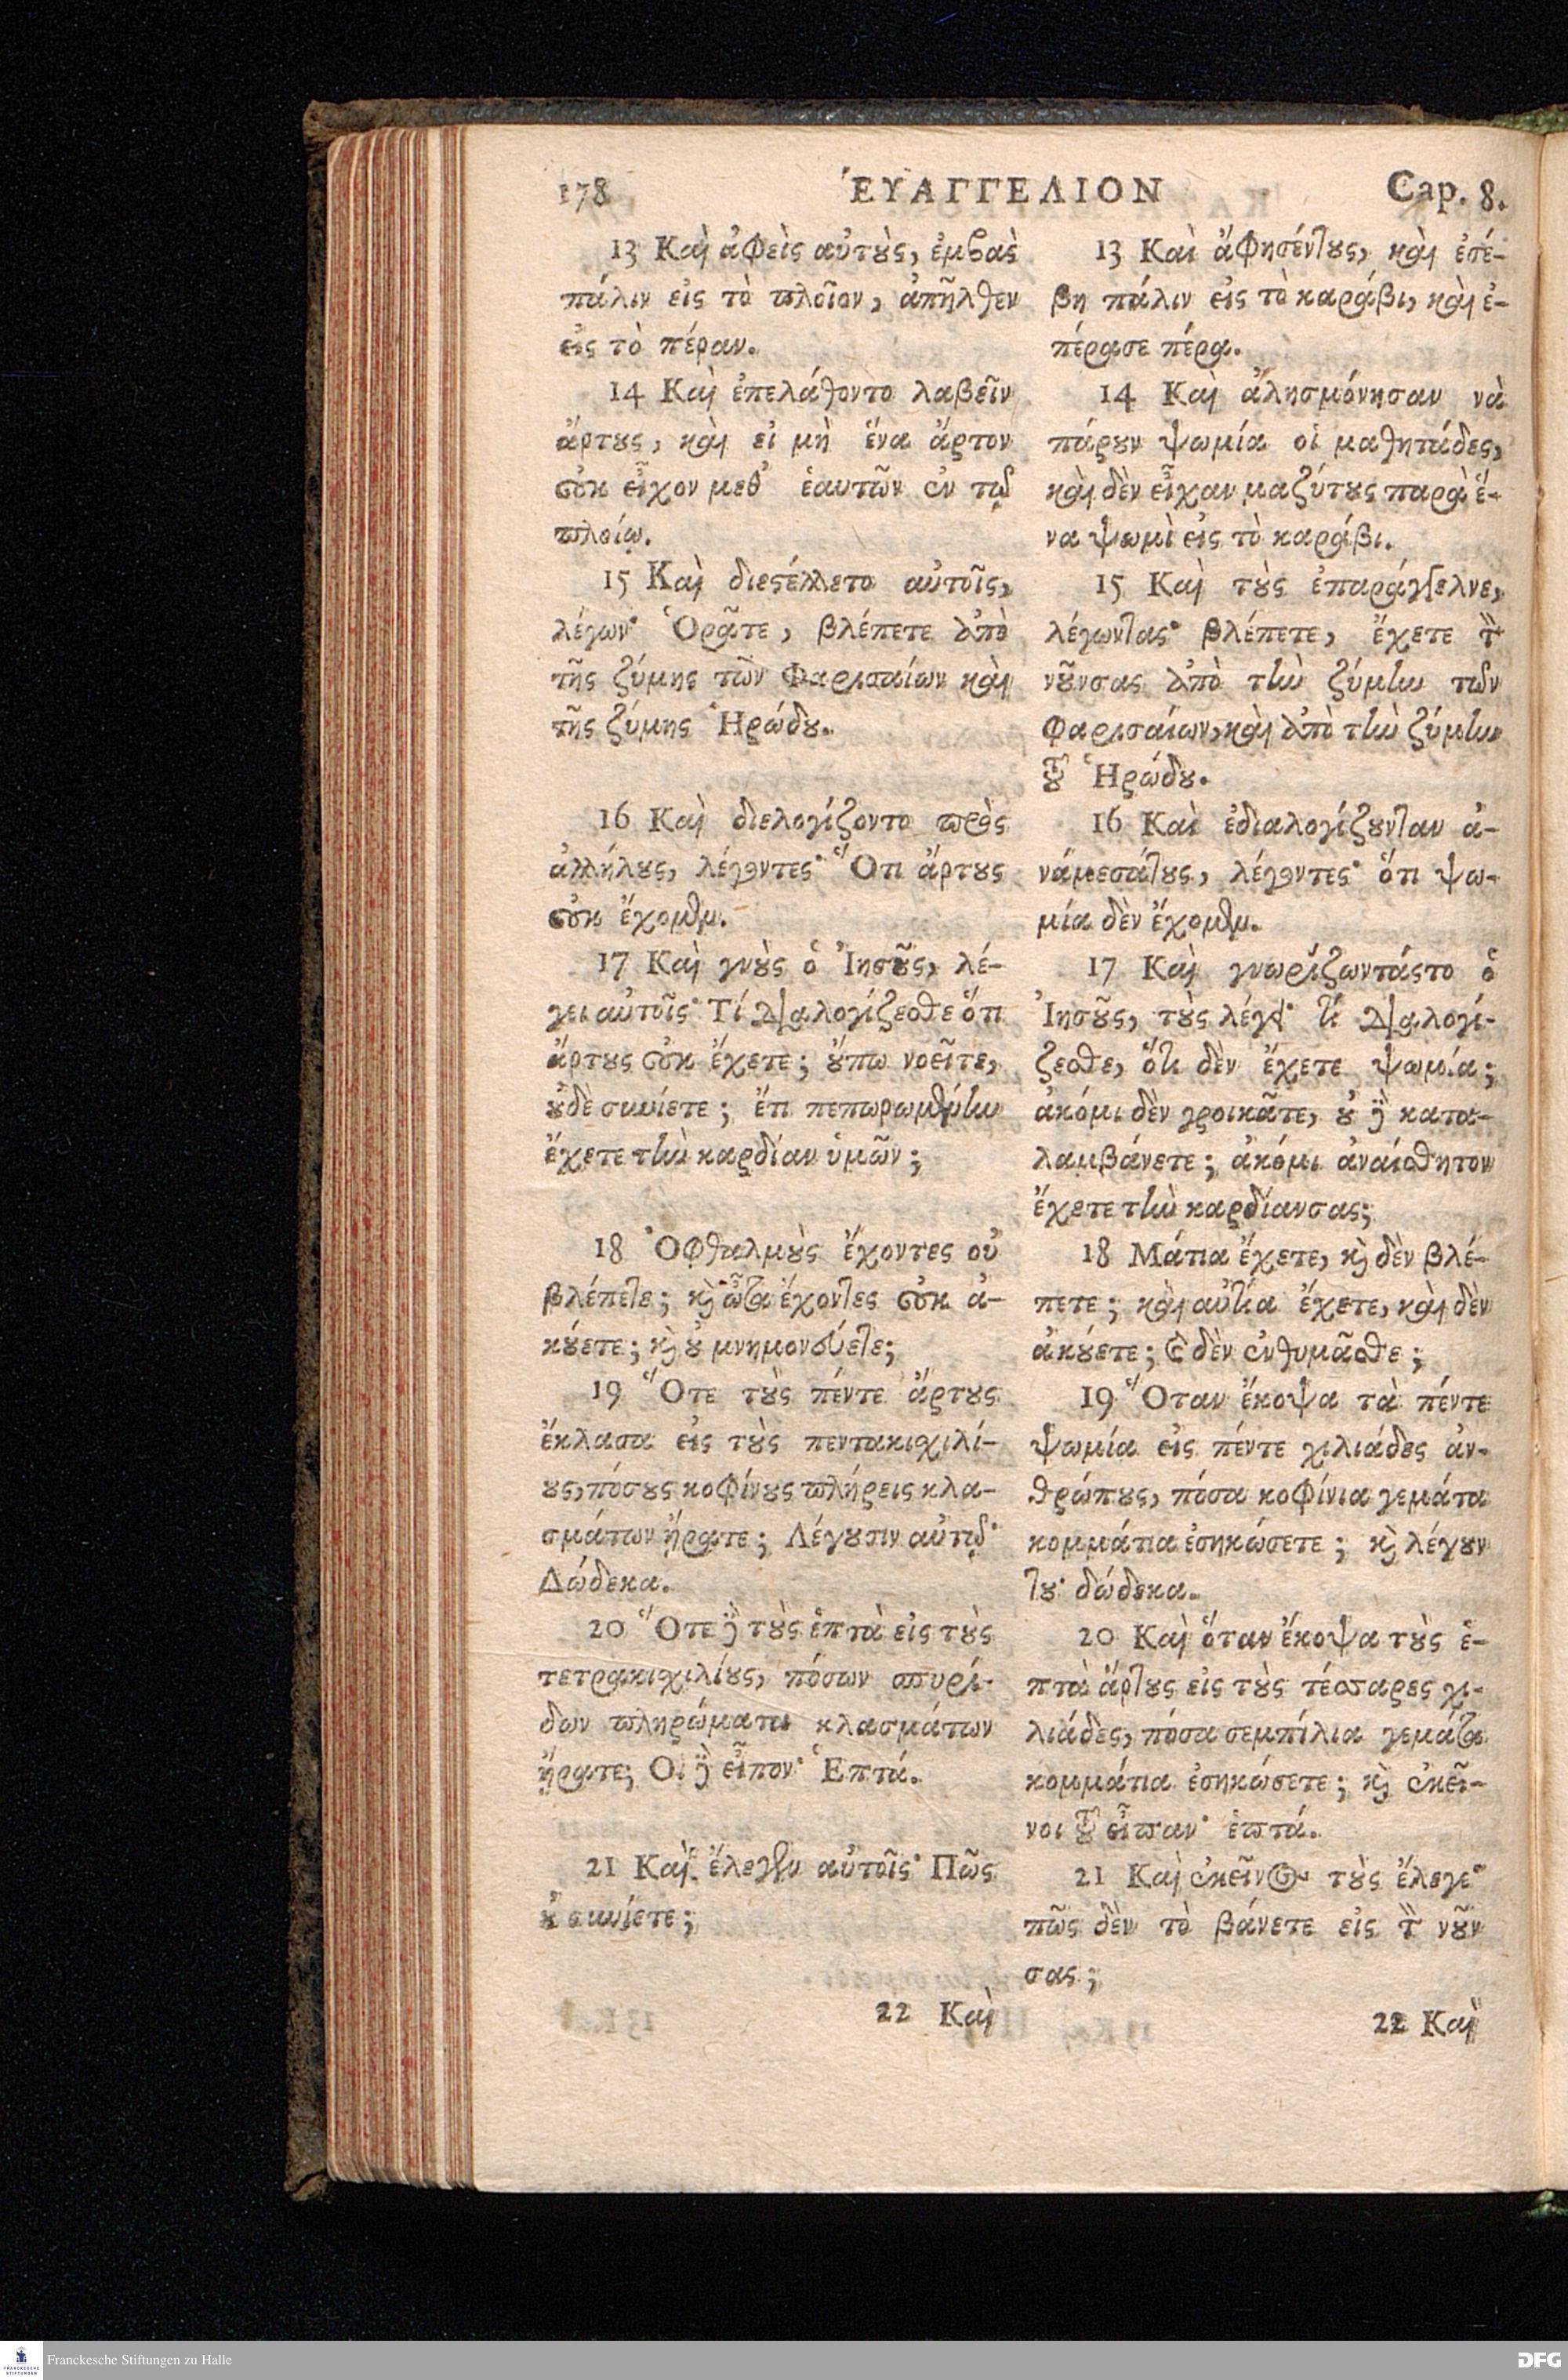 178 ἘΥΑΓΓΕΛΙΟΝ Cap. 8.
13 Καὶ ἀφεὶς αὐτοὺς, ἐμβὰς
πάλιν εἰς τὸ πλοῖον, ἀπῆλθεν
εἰς τὸ πέραν.
14 Καὶ ἐπελάθοντο λαβεῖν
ἄρτους, καὶ εἰ μὴ ἕνα ἄρτον
οὐκ εἶχον μεθ' ἑαυτῶν ἐν τῷ
πλοίῳ.
15 Καὶ διεστέλλετο αὐτοῖς,
λέγων· Ὁρᾶτε, βλέπετε ἀπὸ
τῆς ζύμης τῶν Φαρισαίων καὶ
τῆς ζύμης Ἡρώδου.
16 Καὶ διελογίζοντο πρὸς
ἀλλήλους, λέγοντες· Ὅτι ἄρτους
οὐκ ἔχομεν.
17 Καὶ γνοὺς ὁ Ἰησοῦς, λέ-
γει αὐτοῖς· Τί διαλογίζεσθε ὅτι
ἄρτους οὐκ ἔχετε; οὔπω νοεῖτε,
οὐδὲ συνίετε; ἔτι πεπωρωμένην
ἔχετε τὴν καρδίαν ὑμῶν;
18 Ὀφθαλμοὺς ἔχοντες οὐ
βλέπετε; καὶ ὦτα ἔχοντες οὐκ ἀ-
κούετε; καὶ οὐ μνημονεύετε;
19 Ὅτε τοὺς πέντε ἄρτους
ἔκλασα εἰς τοὺς πεντακιχιλί-
ους, πόσους κοφίνους πλήρεις κλα-
σμάτων ἤρατε; Λέγουσιν αὐτῷ·
Δώδεκα.
20 Ὅτε δὲ τοὺς ἑπτὰ εἰς τοὺς
τετρακιχιλίους, πόσων σπυρί-
δων πληρώματα κλασμάτων
ἤρατε; Οἱ δὲ εἶπον· Ἑπτά.
21 Καὶ ἔλεγεν αὐτοῖς· Πῶς
οὐ συνίετε;
22 Καὶ
13 Καὶ ἄφησέντους, καὶ ἐσέ-
βη πάλιν εἰς τὸ καράβι, καὶ ἐ-
πέρασε πέρα.
14 Καὶ ἀλησμόνησαν νὰ
πάρουν ψωμία οἱ μαθητάδες,
καὶ δὲν εἶχαν μαζύτους παρὰ ἕ-
να ψωμὶ εἰς τὸ καράβι.
15 Καὶ τοὺς ἐπαράγγελνε,
λέγωντας· βλέπετε, ἔχετε τὸν
νοῦνσας ἀπὸ τὴν ζύμην τῶν
Φαρισαίων, καὶ ἀπὸ τὴν ζύμην
τοῦ Ἡρώδου.
16 Καὶ ἐδιαλογίζουνταν ἀ-
νάμεσάτους, λέγοντες· ὅτι ψω-
μία δὲν ἔχομεν.
17 Καὶ γνωρίζωντάςτο ὁ
Ἰησοῦς, τοὺς λέγει· τί διαλογί-
ζεσθε, ὅτι δὲν ἔχετε ψωμία;
ἀκόμι δὲν γροικᾶτε, οὐ δὲ κατα-
λαμβάνετε; ἀκόμι ἀναίσθητον
ἔχετε τὴν καρδίανσας;
18 Μάτια ἔχετε, καὶ δὲν βλέ-
πετε; καὶ αὐτία ἔχετε, καὶ δὲν
ἀκούετε; καὶ δὲν ἐνθυμᾶσθε;
19 Ὅταν ἔκοψα τὰ πέντε
ψωμία εἰς πέντε χιλιάδες ἀν-
θρώπους, πόσα κοφίνια γεμάτα
κομμάτια ἐσηκώσετε; καὶ λέγουν
του· δώδεκα.
20 Καὶ ὅταν ἔκοψα τοὺς ἑ-
πτὰ ἄρτους εἰς τοὺς τέσσαρες χι-
λιάδες, πόσα σεμπίλια γεμάτα
κομμάτια ἐσηκώσετε; καὶ ἐκεῖ-
νοι τοῦ εἶπαν· ἑπτά.
21 Καὶ ἐκεῖνος τοὺς ἔλεγε·
πῶς δὲν τὸ βάνετε εἰς τὸν νοῦν
σας;
22 Καὶ
FRANCKESCHE STIFTUNGEN
Franckesche Stiftungen zu Halle
DFG